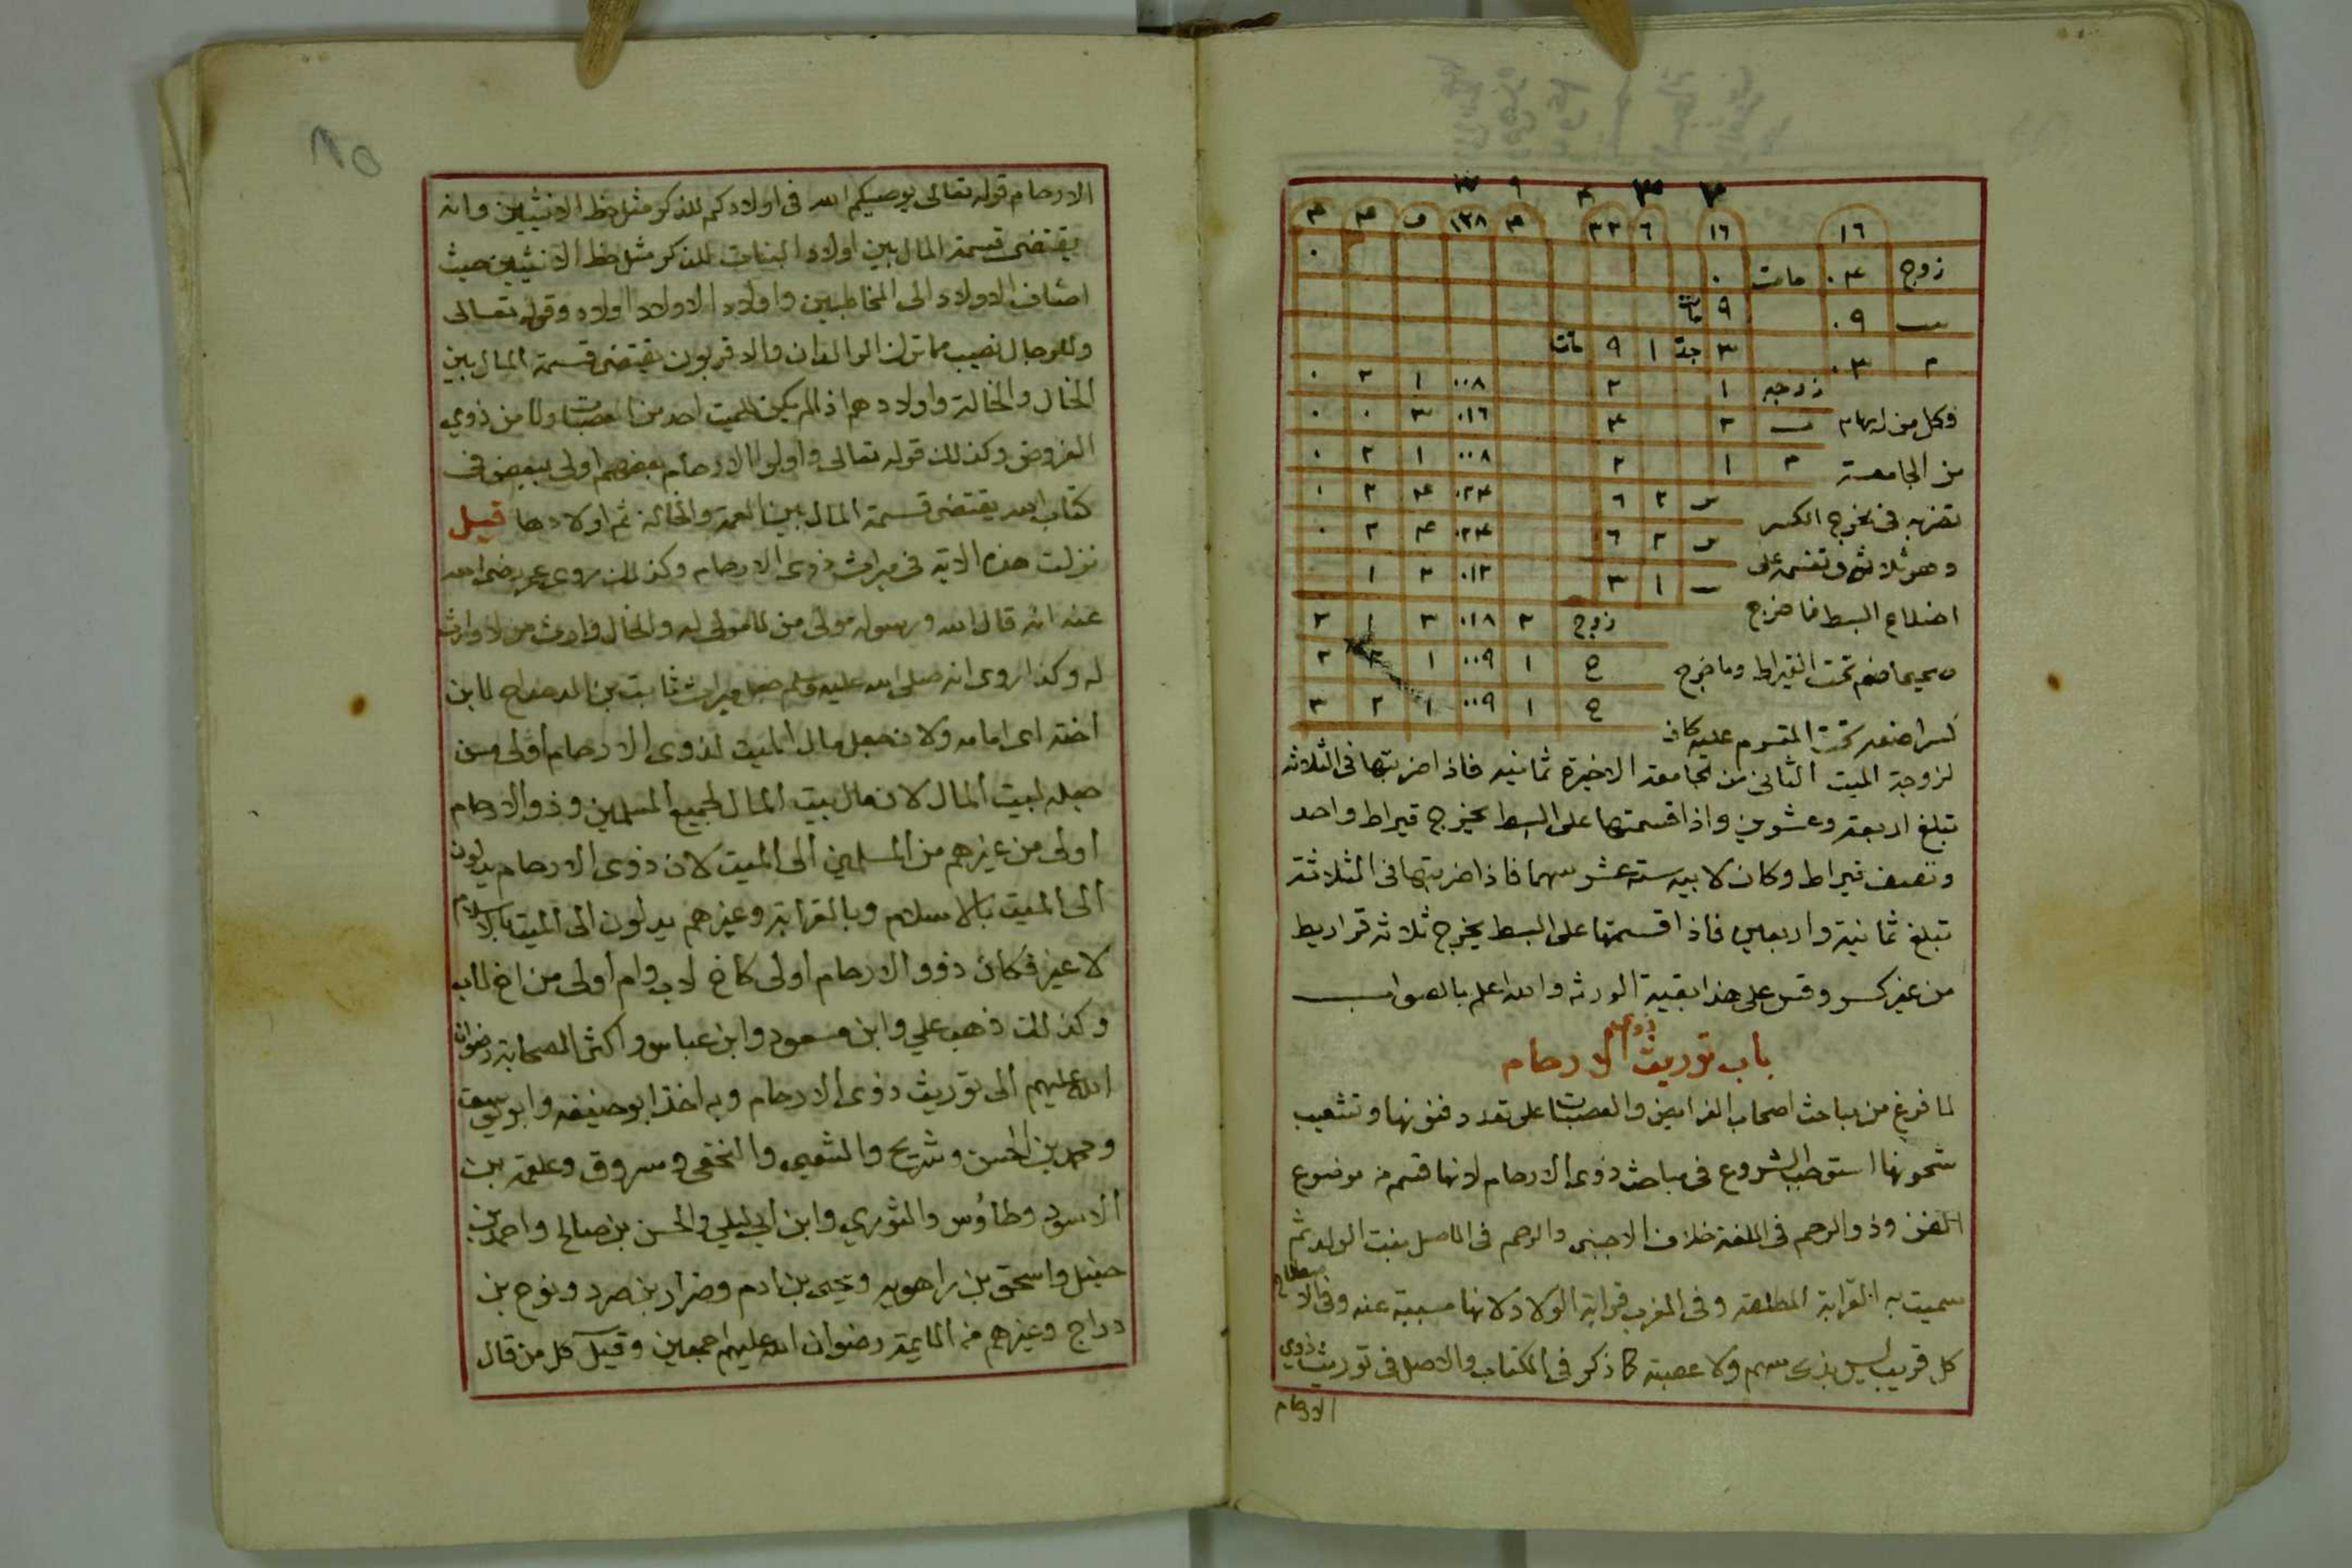 ١٦ ١٦ ٦ ٣٢ ٣ ١٢٨ ف ٣ ٣
زوج ٤٠ مات ٠ ٠
ب ٠٩ ٩ مات
٣ ٠٣ ٣ جدة ١ ٩ ماتت
زوجه ١ ٢ ٠٠٨ ١ ٢ ٠
وكل من له سهام ب ٢ ٤ ٠١٦ ٣ ٠ ٠
من الجامعة ١ ٢ ٠٠٨ ١ ٢ ٠
تضربه فى مخرج الكسر ٢ ٦ ٠٢٤ ٤ ٢ ٠
وهو ثلاثة وتقسمه على ٢ ٦ ٠٢٤ ٤ ٢ ٠
١ ٣ ٠١٢ ٢ ١
اضلاع البسط فما خرج
زوج ٢ ٠١٨ ٣ ١ ٢
صحيحا ضعه تحت القيراط وما خرج
ح ١ ٠٠٩ ١ ٢ ٣
كسرا ضعه تحت المقسوم عليه كان
ح ١ ٠٠٩ ١ ٢ ٣
لزوجة الميت الثانى من الجامعة الاخيرة ثمانيه فاذا ضربتها فى الثلاثه
تبلغ اربعة وعشرين واذا قسمتها على البسط يخرج قيراط واحد
ونصف قيراط وكان لابيه ستة عشر سهما فاذا ضربتها فى الثلاثة
تبلغ ثمانية واربعين فاذا قسمتها على البسط يخرج ثلاثه قراريط
من غير كسر وقس على هذا بقية الورثه والله اعلم بالصواب
باب توريث ذوى الارحام
لما فرغ من مباحث اصحاب الفرايض والعصبات على تعدد فنونها وتشعيب
شجونها استوطب الشروع فى مباحث ذوى الارحام لانها قسم من موضوع
الفن وذو الرحم فى اللغة خلاف الاجنبى والرحم فى الاصل منبت الولد ثم
سميت به القرابة المطلقه وفى المغرب قرابة الولاد لانها مسببة عنه وفى الاصطلاح
كل قريب ليس بذى سهم ولا عصبة كما ذكر فى الكتاب والاصل فى توريث ذوي
الارحام
الارحام قوله تعالى يوصيكم الله فى اولادكم للذكر مثل حظ الانثيين وانه
يقتضى قسمة المال بين اولاد البنات للذكر مثل حظ الانثيين حيث
اضاف الاولاد الى المخاطبين واولاد الاولاد اولاد وقوله تعالى
وللرجال نصيب مما ترك الوالدان والاقربون يقتضى قسمة المال بين
الخال والخالة واولادهم اذا لم يكن للميت احد من العصبات ولا من ذوي
الفروض وكذلك قوله تعالى واولوا الارحام بعضهم اولى ببعض فى
كتاب الله يقتضى قسمة المال بين العمة والخالة ثم اولادها قيل
نزلت هذه الاية فى ميراث ذوى الارحام وكذلك روى عمر رضى الله
عنه انه قال الله ورسوله مولى من لا مولى له والخال وارث من لا وارث
له وكذا روى انه صلى الله عليه وسلم جعل ميراث ثابت بن الدحداح لابن
اخته ابى امامه ولان جعل مال الميت لذوى الارحام اولى من
جعله لبيت المال لان مال بيت المال لجميع المسلمين وذو الارحام
اولى من غيرهم من المسلمين الى الميت لان ذوى الارحام يدلون
الى الميت بالاسلام وبالقرابة وغيرهم يدلون الى الميت بالاسلام
لا غير فكان ذوو الارحام اولى كاخ لاب وام اولى من اخ لاب
وكذلك ذهب علي وابن مسعود وابن عباس واكثر الصحابة رضوان
الله عليهم الى توريث ذوى الارحام وبه اخذ ابو حنيفه وابو يوسف
ومحمد بن الحسن وشريح والشعبى والنخعى ومسروق وعلقمة بن
الاسود وطاؤس والثوري وابن ابي ليلي والحسن بن صالح واحمد بن
حنبل واسحق بن راهويه ويحيى بن ادم وضرار بن صرد ونوح بن
دراج وغيرهم من الايمة رضوان الله عليهم اجمعين وقيل كل من قال